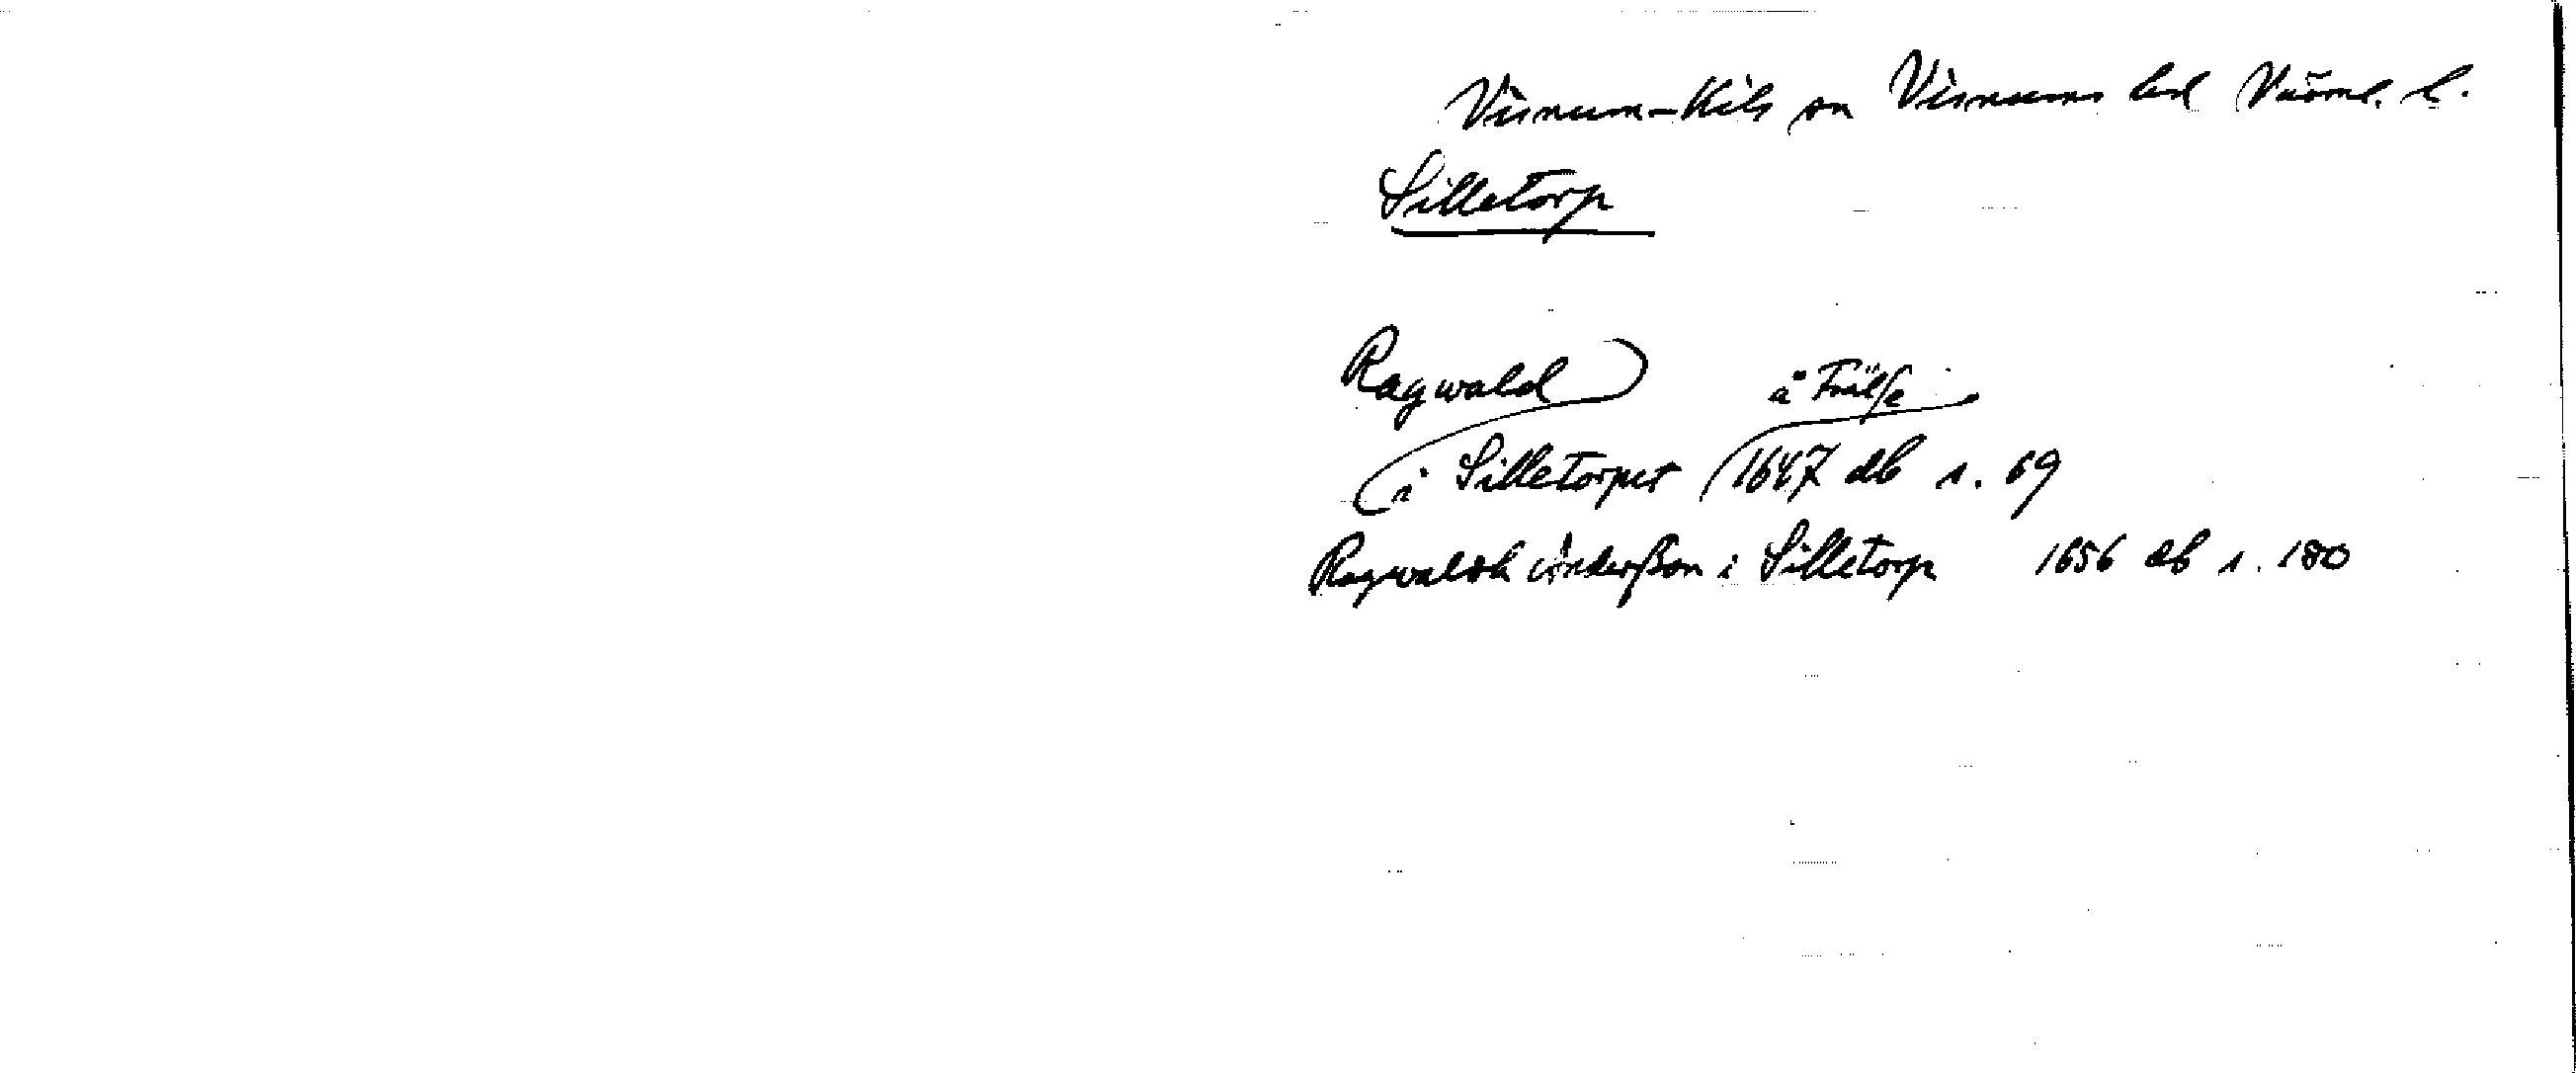 Visnum-Kils sn Visnums hd Värml. l.
Silletorp
Ragwald å Frälse
i Silletorpet 1647 db s. 69
Ragwaldh Anderßon i Silletorp 1656 db s. 180